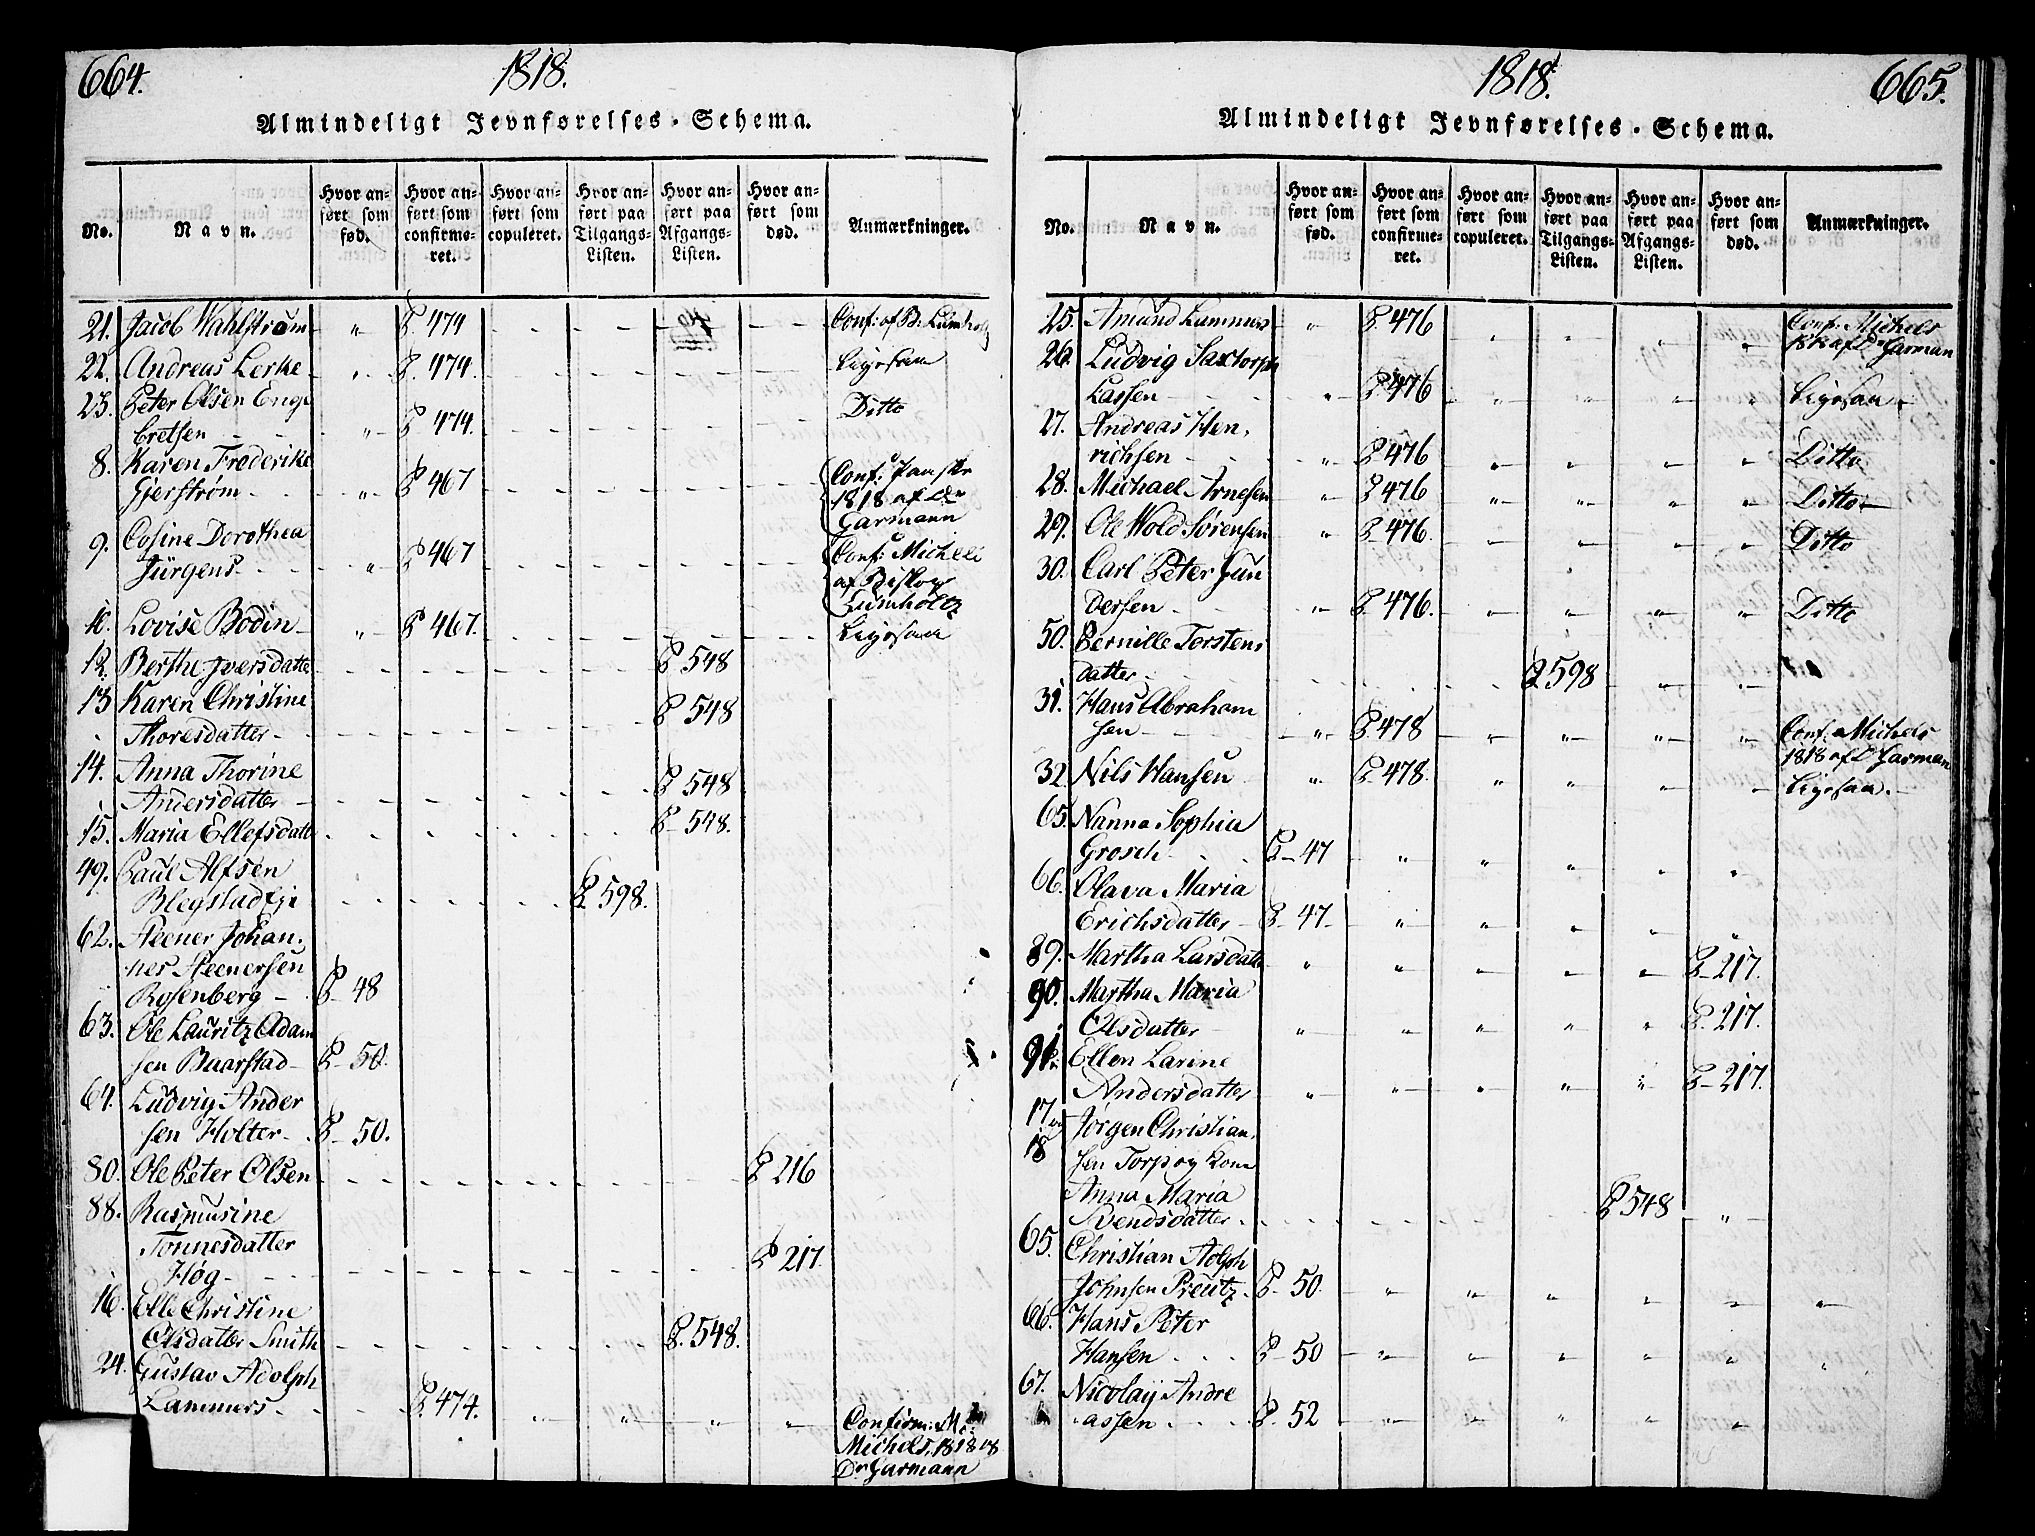 664.
1818.
Almindeligt Jevnførelses-Schema.
No. Navn. Hvor anført som fød. Hvor anført som confirmeret. Hvor anført som copuleret. Hvor anført paa Tilgangs-Listen. Hvor anført paa Afgangs-Listen. Hvor anført som død. Anmærkninger.
21. Jacob Wahlstrøm " P. 474 Conf: af B: Lumholtz
22. Andreas Lerke " P. 474. Ligesaa
23. Peter Olsen Enge
bretsen " P 474. Ditto
8. Karen Frederike
Gjerstrøm " P 467 Conf:
1818 af Dr
Garmann
9. Cosine Dorothea
Jürgens " P 467 Conf: Micheli
af Biskop
Lumholtz
10. Lovise Bodin " P 467. Ligesaa
12. Berthe Iversdatter P 548
13 Karen Christine
Thoresdatter P 548
14. Anna Thorine
Andersdatter P 548
15. Maria Ellefsdatt P 548.
49. Paul Alfsen
P 598.
62. Steener Johan-
nes Steenersen
Rosenberg P 48
63. Ole Lauritz Adam
sen Baarstad P 50.
64. Ludvig Ander
sen Holter P 50.
80. Ole Peter Olsen P 216
88. Rasmusine
Tönnesdatter
Høg P 217.
16. Elle Christine
Olsdatter Smith P. 548.
24. Gustav Adolph
Lammers P. 474. " " " " Confirm:
Michels, 1818
Dr Garmann
665.
1818.
Almindeligt Jevnførelses-Schema.
No. Navn. Hvor anført som fød. Hvor anført som confirmeret. Hvor anført som copuleret. Hvor anført paa Tilgangs-Listen. Hvor anført paa Afgangs-Listen. Hvor anført som død. Anmærkninger.
25. Amund Lammers " P 476 " " " " Conf. Michels
1818 af Dr Garman
26. Ludvig Saxtorph
Lassen " P 476 " " " " Ligesaa
27. Andreas Hen-
richsen " P 476 " " " " Ditto
28. Michael Arnesen " P 476 " " " " Ditto
29. Ole Wold Sörensen " P 476. " " " " Ditto
30. Carl Peter Gun
dersen " P 476. " " " " Ditto
50. Pernille Torstens
datter P 598 " "
31. Hans Abraham
sen " P 478 " " " " Conf. Michels
1818 af Dr Garman
32 Nils Hansen " P 478. " " " " Ligesaa.
65. Nanna Sophia
Grosch P 47 " " " " "
66. Olava Maria
Erichsdatter P 47. " " " " "
89. Martha Larsdatt " " " " " P 217.
90. Martha Maria
Olsdatter " " " " " P. 217.
91. Ellen Larine
Andersdatter " " " " " P 217.
17 og
18 Jörgen Christian-
sen Torp og Kone
Anna Maria
Svendsdatter P 548 "
65. Christian Adlph
Johnsen Preutz P 50. " " " " " "
66. Hans Peter
Hansen P 50 " " " " " "
67. Nicolay Andre
assen P. 52 " " " " "